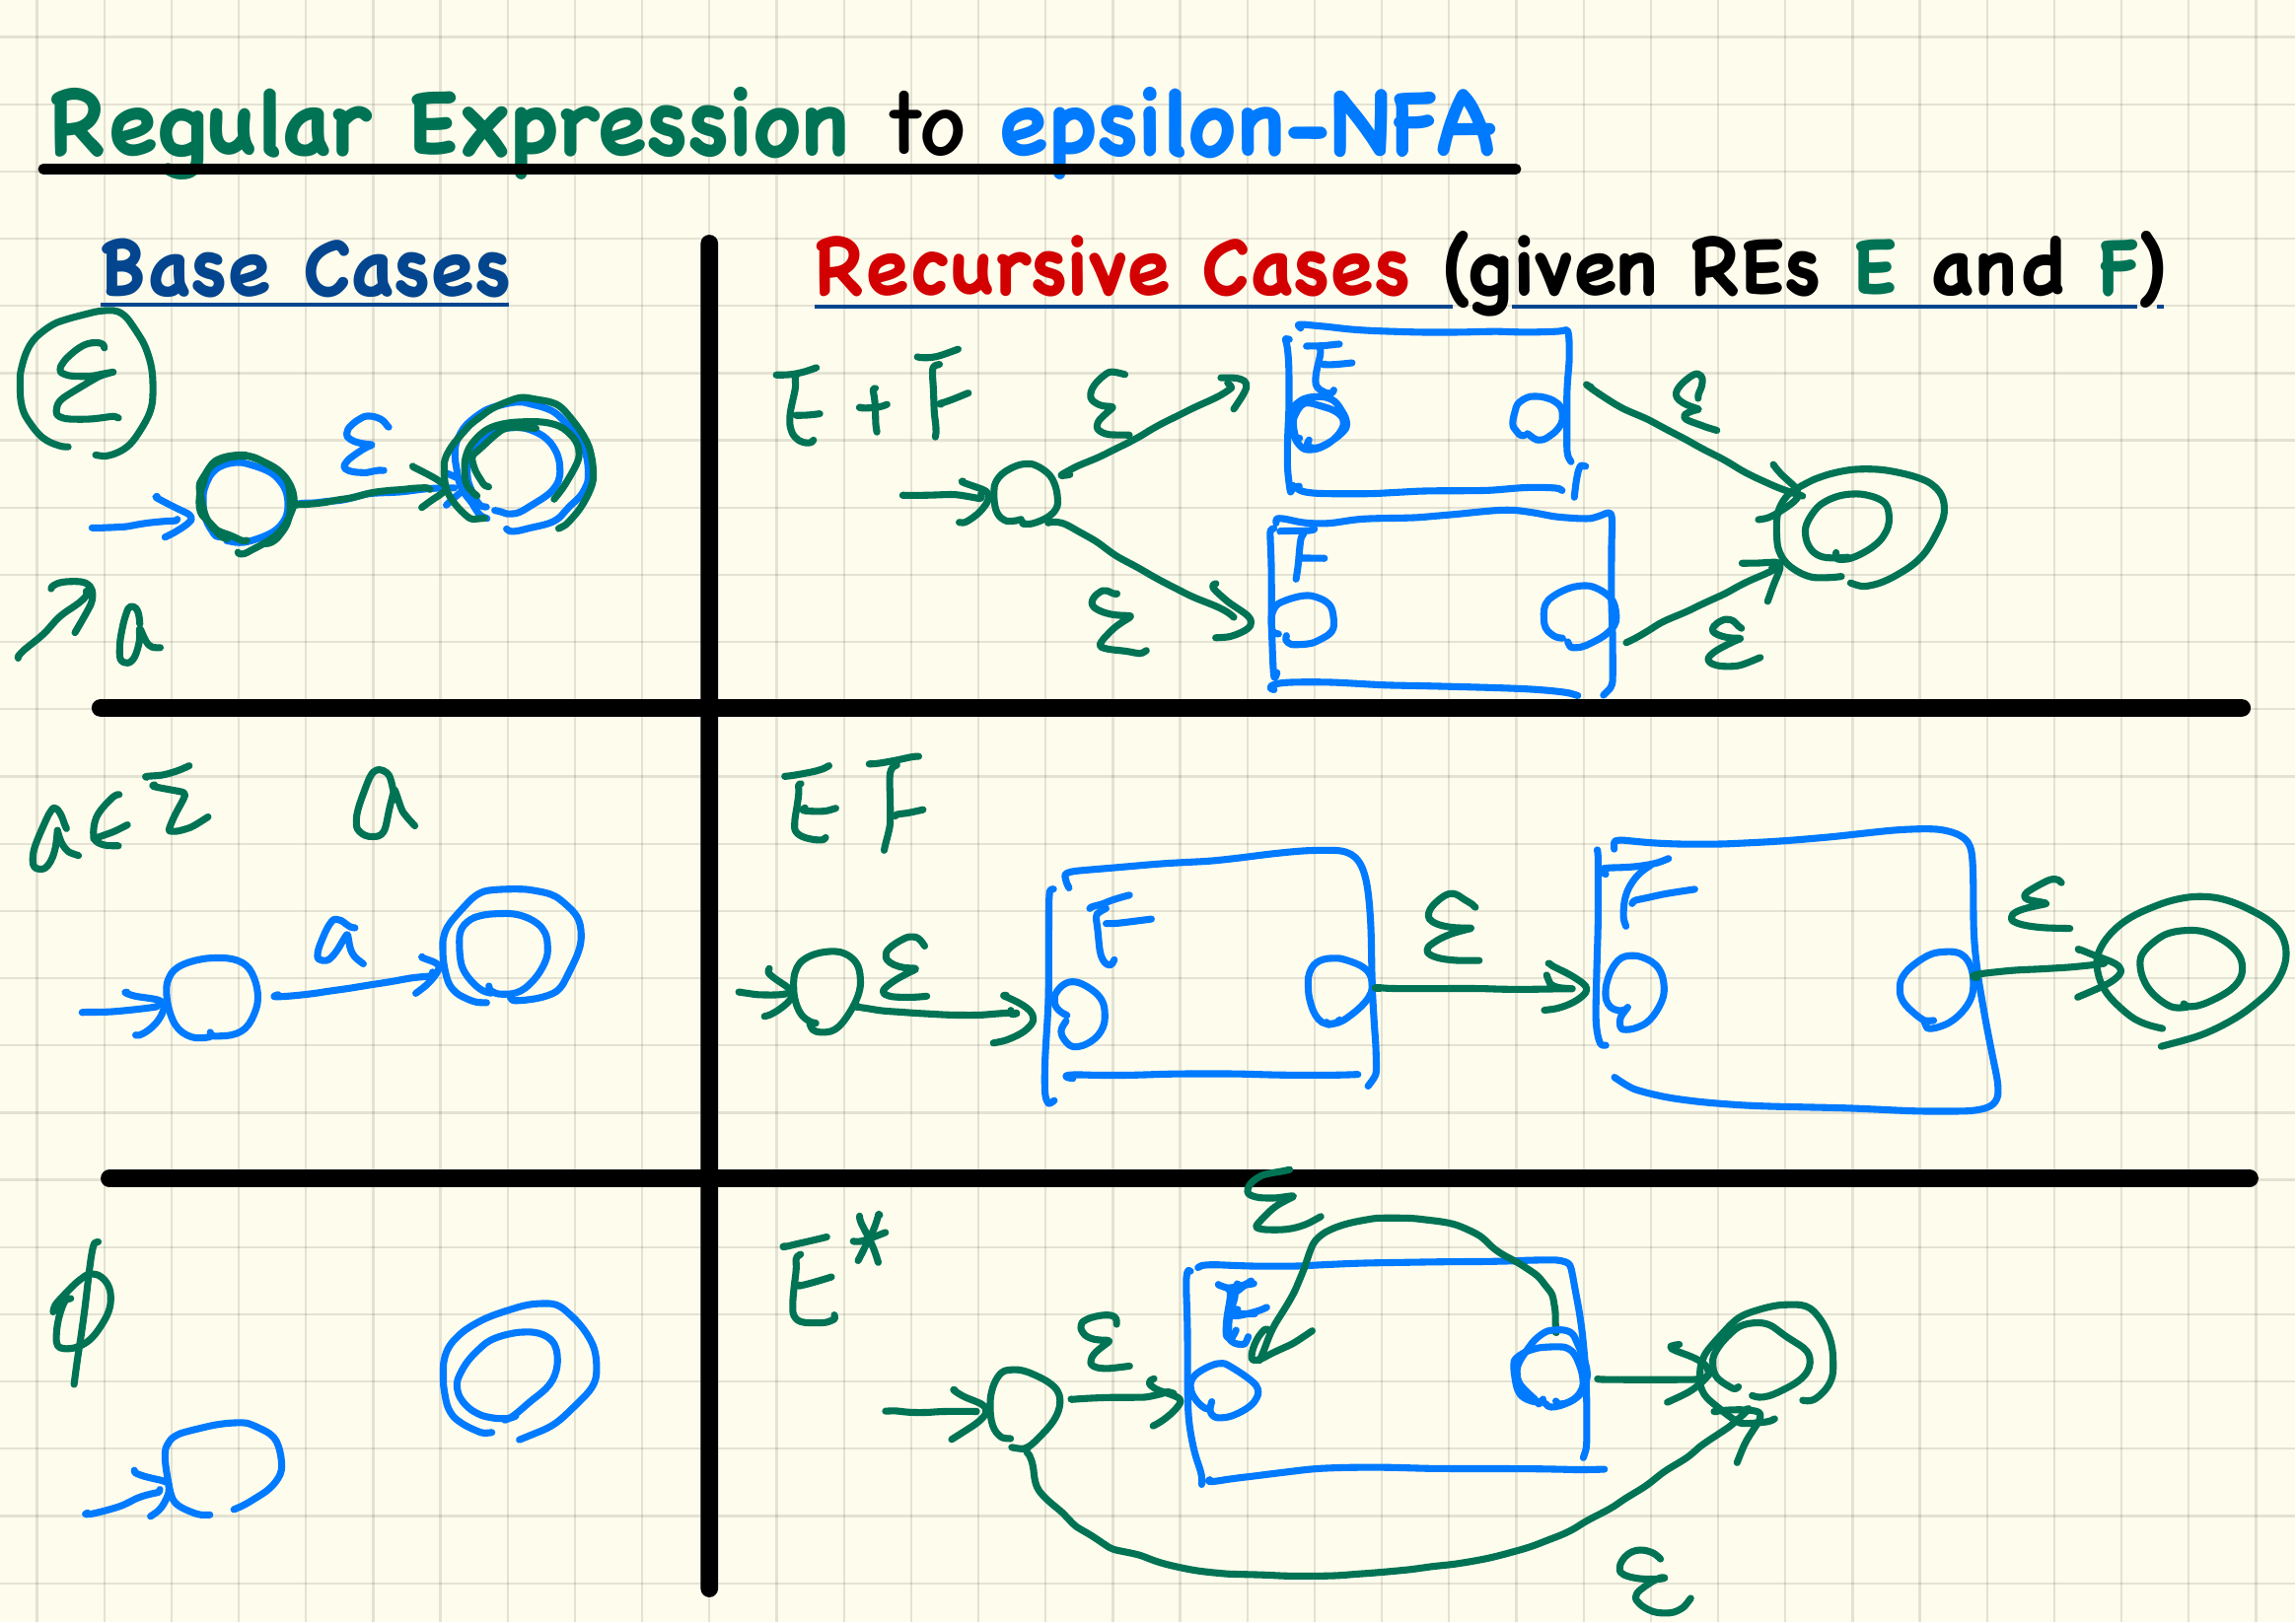 Regular Expression to epsilon-NFA
Base Cases
Recursive Cases (given REs E and F)
ε
ε
a
E + F
ε
E
ε
ε
F
ε
a ∈ Σ a
a
E F
ε
E
ε
F
ε
ϕ
E*
ε
ε
E
ε